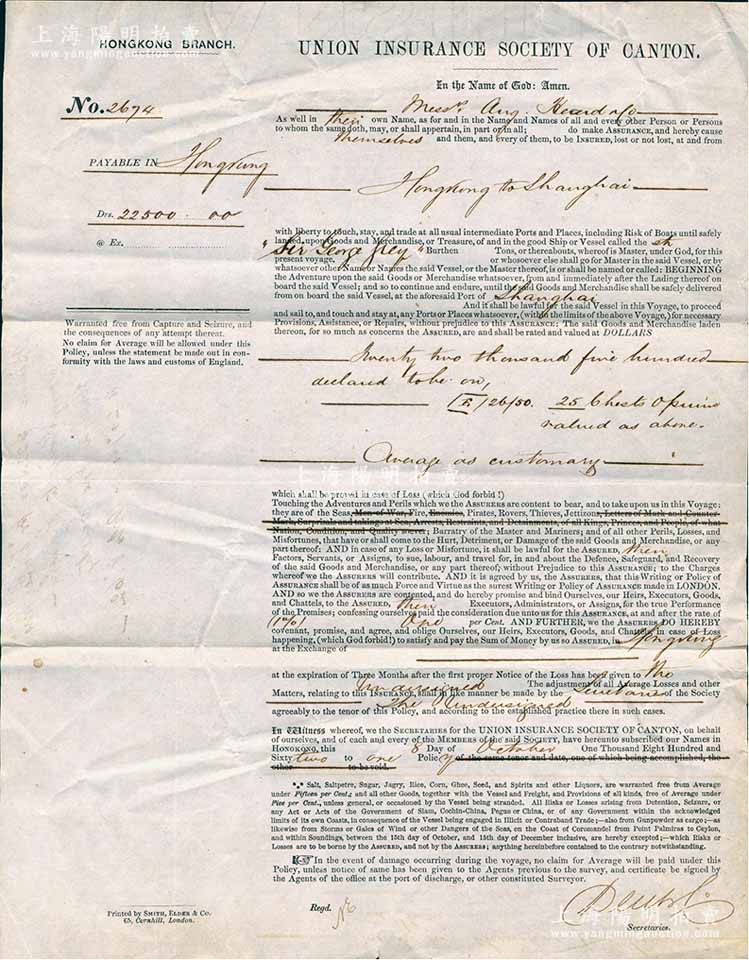 上海陽明拍賣
www.yangmingauction.com
HONGKONG BRANCH.
UNION INSURANCE SOCIETY OF CANTON.
In the Name of God: Amen.
No. 2674
Messrs. Aug. Heard & Co
As well in their own Name, as for and in the Name and Names of all and every other Person or Persons
to whom the same doth, may, or shall appertain, in part or in all; do make ASSURANCE, and hereby cause
themselves and them, and every of them, to be INSURED, lost or not lost, at and from
PAYABLE IN Hongkong
Hongkong to Shanghai
Drs. 22500.00
@ Ex.
with liberty to touch, stay, and trade at all usual intermediate Ports and Places, including Risk of Boats until safely
landed, upon Goods and Merchandise, or Treasure, of and in the good Ship or Vessel called the str
"Sir George Grey" Burthen Tons, or thereabouts, whereof is Master, under God, for this
present voyage, or whosoever else shall go for Master in the said Vessel, or by
whatsoever other Name or Names the said Vessel, or the Master thereof, is or shall be named or called: BEGINNING
the Adventure upon the said Goods or Merchandise whatsoever, from and immediately after the Lading thereof on
board the said Vessel; and so to continue and endure, until the said Goods and Merchandise shall be safely delivered
from on board the said Vessel, at the aforesaid Port of Shanghai
And it shall be lawful for the said Vessel in this Voyage, to proceed
and sail to, and touch and stay at, any Ports or Places whatsoever, (within the limits of the above Voyage,) for necessary
Provisions, Assistance, or Repairs, without prejudice to this ASSURANCE: The said Goods and Merchandise laden
thereon, for so much as concerns the ASSURED, are and shall be rated and valued at DOLLARS
Warranted free from Capture and Seizure, and
the consequences of any attempt thereat.
No claim for Average will be allowed under this
Policy, unless the statement be made out in con-
formity with the laws and customs of England.
Twenty two thousand five hundred
declared to be on,
26/50. 25 Chests Opium
valued as above.
Average as customary
which shall be proved in case of Loss (which God forbid!)
Touching the Adventures and Perils which we the ASSURERS are content to bear, and to take upon us in this Voyage:
they are of the Seas, Men-of-War, Fire, Enemies, Pirates, Rovers, Thieves, Jettizons, Letters of Mark and Counter-
Mark, Surprisals and takings at Sea, Arrests, Restraints, and Detainments, of all Kings, Princes, and People, of what
Nation, Condition, and Quality soever; Barratry of the Master and Mariners; and of all other Perils, Losses, and
Misfortunes, that have or shall come to the Hurt, Detriment, or Damage of the said Goods and Merchandise, or any
part thereof: AND in case of any Loss or Misfortune, it shall be lawful for the ASSURED, their
Factors, Servants, or Assigns, to sue, labour, and travel for, in and about the Defence, Safeguard, and Recovery
of the said Goods and Merchandise, or any part thereof; without Prejudice to this ASSURANCE; to the Charges
whereof we the ASSURERS will contribute. AND it is agreed by us, the ASSURERS, that this Writing or Policy of
ASSURANCE shall be of as much Force and Virtue as the surest Writing or Policy of ASSURANCE made in LONDON.
AND so we the ASSURERS are contented, and do hereby promise and bind Ourselves, our Heirs, Executors, Goods,
and Chattels, to the ASSURED, their Executors, Administrators, or Assigns, for the true Performance
of the Premises; confessing ourselves paid the consideration due unto us for this ASSURANCE, at and after the rate of
(1%) One per Cent. AND FURTHER, we the ASSURERS DO HEREBY
covenant, promise, and agree, and oblige Ourselves, our Heirs, Executors, Goods, and Chattels, in case of Loss
happening, (which God forbid!) to satisfy and pay the Sum of Money by us so ASSURED, in Hongkong
at the Exchange of
at the expiration of Three Months after the first proper Notice of the Loss has been given to the
Undersigned The adjustment of all Average Losses and other
Matters, relating to this INSURANCE, shall in like manner be made by the Secretaries of the Society
The Undersigned
agreeably to the tenor of this Policy, and according to the established practice there in such cases.
In Witness whereof, we the SECRETARIES for the UNION INSURANCE SOCIETY OF CANTON, on behalf
of ourselves, and of each and every of the MEMBERS of the said SOCIETY, have hereunto subscribed our Names in
HONGKONG, this 8 Day of October One Thousand Eight Hundred and
Sixty two to one Policy of the same tenor and date, one of which being accomplished, the
other to be void.
*** Salt, Saltpetre, Sugar, Jagry, Rice, Corn, Ghee, Seed, and Spirits and other Liquors, are warranted free from Average
under Fifteen per Cent.; and all other Goods, together with the Vessel and Freight, and Provisions of all kinds, free of Average under
Five per Cent., unless general, or occasioned by the Vessel being stranded. All Risks or Losses arising from Detention, Seizure, or
any Act or Acts of the Government of Siam, Cochin-China, Pegue or China, or of any Government within the acknowledged
limits of its own Coasts, in consequence of the Vessel being engaged in Illicit or Contraband Trade;—also from Gunpowder as cargo;—as
likewise from Storms or Gales of Wind or other Dangers of the Seas, on the Coast of Coromandel from Point Palmiras to Ceylon,
and within Soundings, between the 15th day of October, and 15th day of December inclusive, are hereby excepted;—which Risks or
Losses are to be borne by the ASSURED, and not by the ASSURERS; anything hereinbefore contained to the contrary notwithstanding.
In the event of damage occurring during the voyage, no claim for Average will be paid under this
Policy, unless notice of same has been given to the Agents previous to the survey, and certificate be signed by
the Agents of the office at port of discharge, or other constituted Surveyor.
Printed by SMITH, ELDER & Co.
65, Cornhill, London.
Regd.
Secretaries.
上海陽明拍賣
www.yangmingauction.com